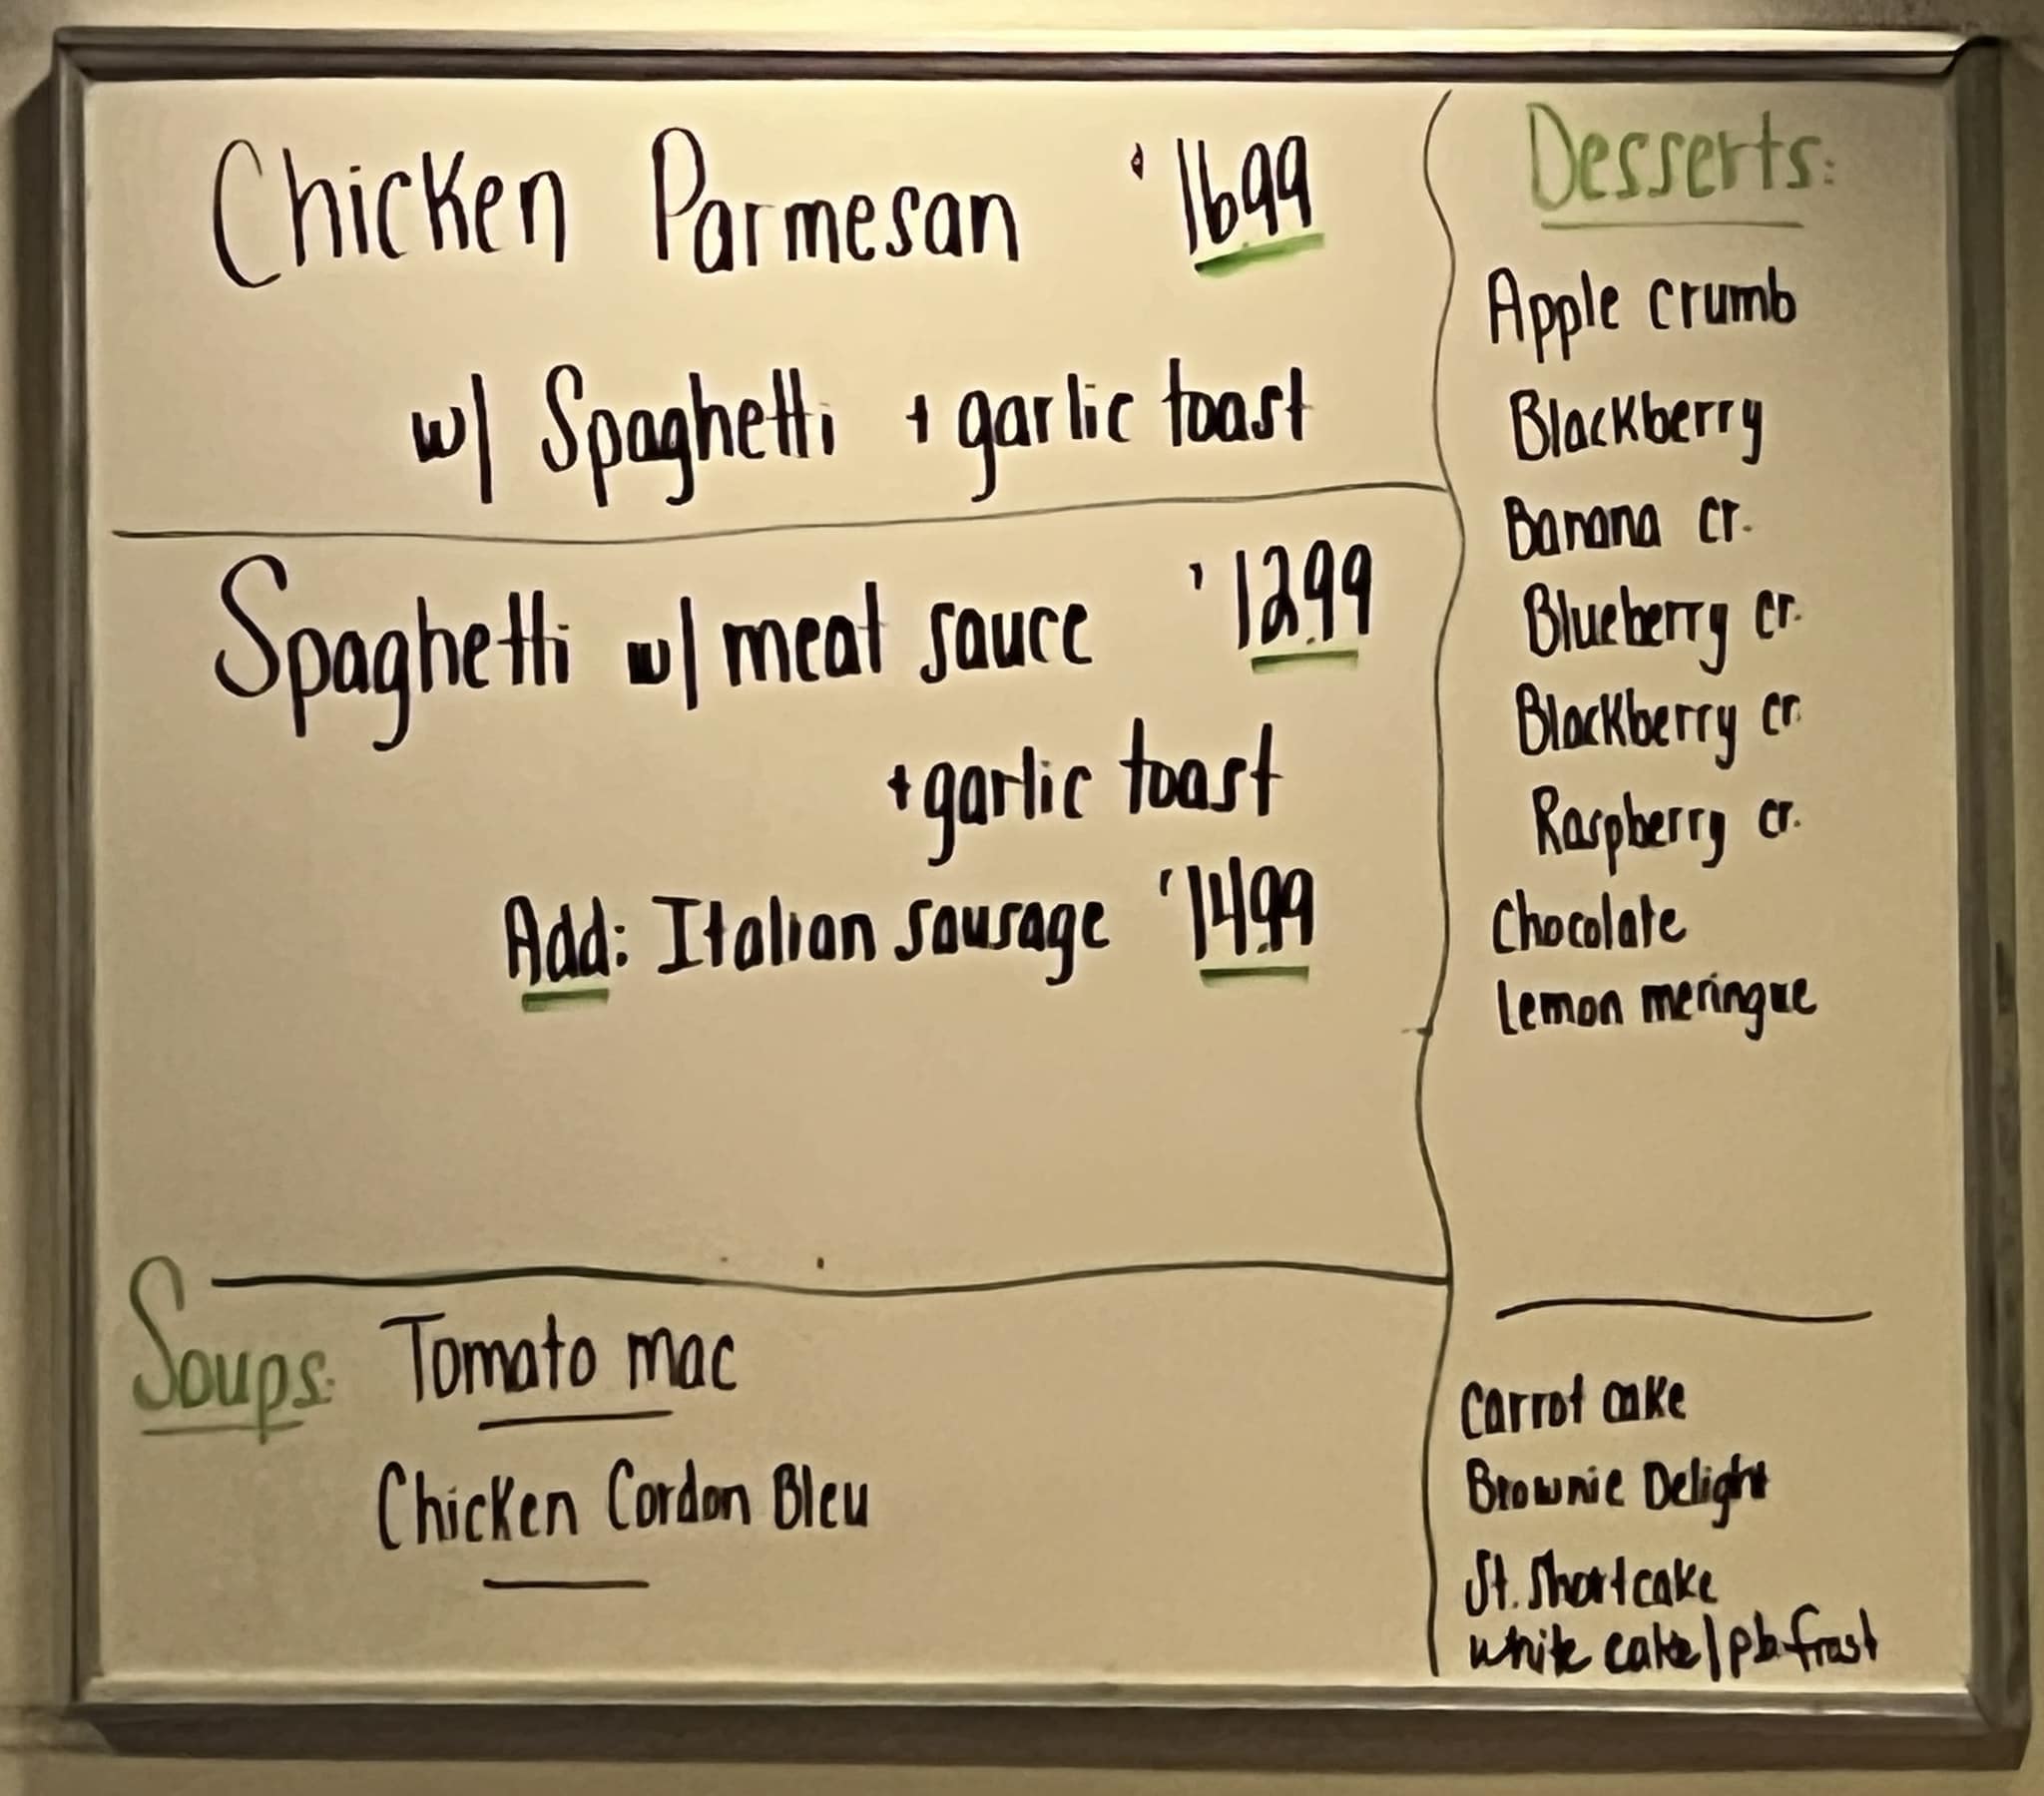 Chicken Parmesan $16.99
w/ Spaghetti + garlic toast
Spaghetti w/ meat sauce $12.99
+ garlic toast
Add: Italian sausage $14.99
Soups: Tomato mac
Chicken Cordon Bleu
Desserts:
Apple crumb
Blackberry
Banana cr.
Blueberry cr.
Blackberry cr.
Raspberry cr.
Chocolate
Lemon meringue
Carrot cake
Brownie Delight
St. Shortcake
white cake/pb.frost